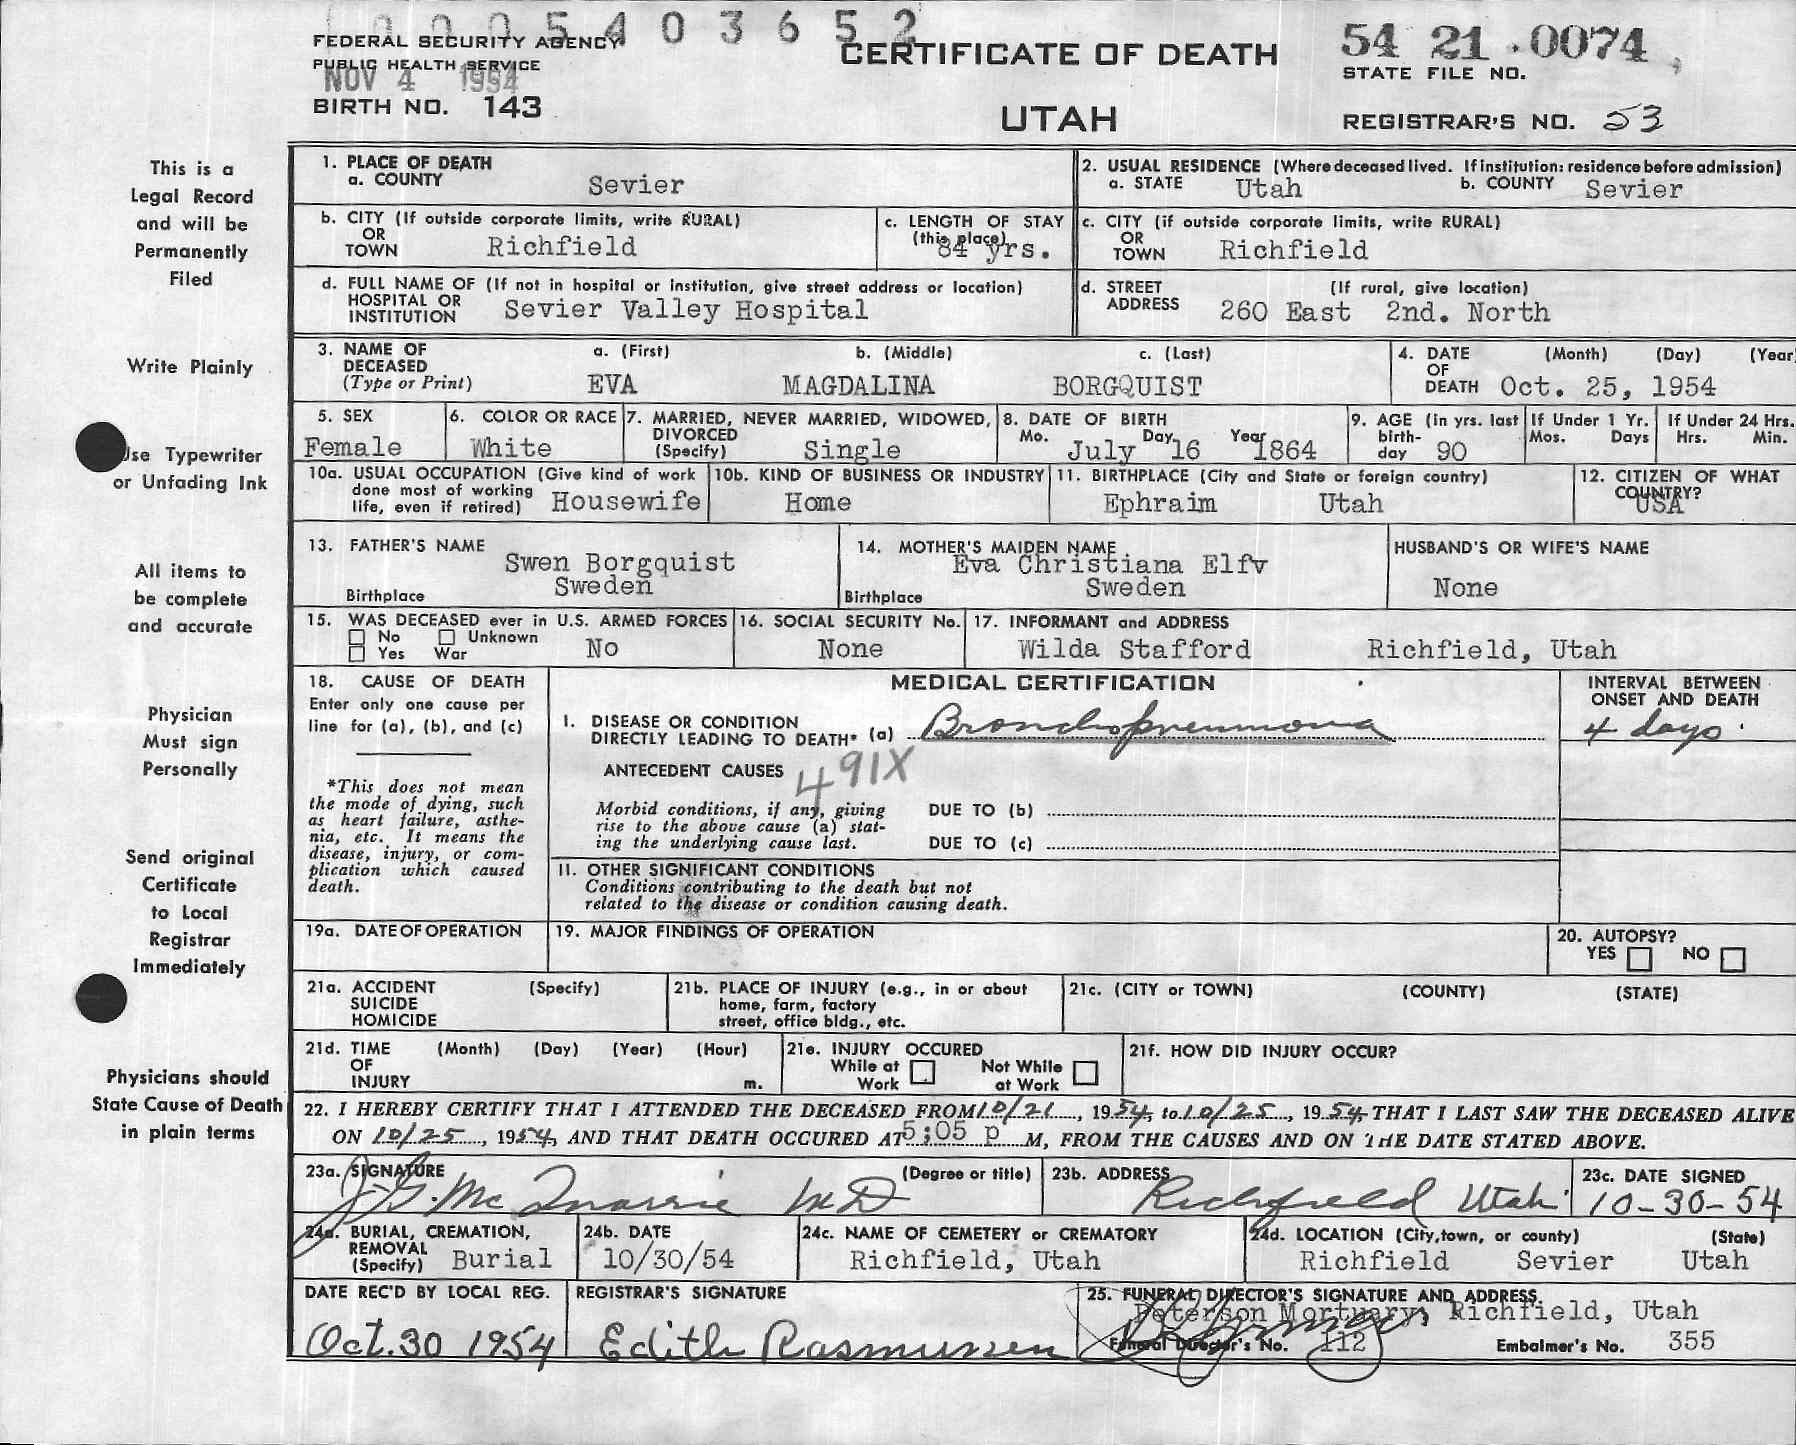 0005403652
FEDERAL SECURITY AGENCY
PUBLIC HEALTH SERVICE
NOV 4 1954
BIRTH NO. 143
CERTIFICATE OF DEATH
UTAH
54 21 0074
STATE FILE NO.
REGISTRAR'S NO. 53
This is a
Legal Record
and will be
Permanently
Filed
Write Plainly
Use Typewriter
or Unfading Ink
All items to
be complete
and accurate
Physician
Must sign
Personally
Send original
Certificate
to Local
Registrar
Immediately
Physicians should
State Cause of Death
in plain terms
1. PLACE OF DEATH
a. COUNTY Sevier
2. USUAL RESIDENCE (Where deceased lived. If institution: residence before admission)
a. STATE Utah b. COUNTY Sevier
b. CITY (If outside corporate limits, write RURAL)
OR
TOWN Richfield
c. LENGTH OF STAY
(this place)
84 yrs.
c. CITY (if outside corporate limits, write RURAL)
OR
TOWN Richfield
d. FULL NAME OF (If not in hospital or institution, give street address or location)
HOSPITAL OR
INSTITUTION Sevier Valley Hospital
d. STREET (If rural, give location)
ADDRESS 260 East 2nd. North
3. NAME OF a. (First) b. (Middle) c. (Last)
DECEASED
(Type or Print) EVA MAGDALINA BORGQUIST
4. DATE (Month) (Day) (Year
OF
DEATH Oct. 25, 1954
5. SEX
Female
6. COLOR OR RACE
White
7. MARRIED, NEVER MARRIED, WIDOWED,
DIVORCED
(Specify) Single
8. DATE OF BIRTH
Mo. Day Year
July 16 1864
9. AGE (in yrs. last
birth-
day 90
If Under 1 Yr.
Mos. Days
If Under 24 Hrs.
Hrs. Min.
10a. USUAL OCCUPATION (Give kind of work
done most of working
life, even if retired) Housewife
10b. KIND OF BUSINESS OR INDUSTRY
Home
11. BIRTHPLACE (City and State or foreign country)
Ephraim Utah
12. CITIZEN OF WHAT
COUNTRY?
USA
13. FATHER'S NAME
Swen Borgquist
Birthplace Sweden
14. MOTHER'S MAIDEN NAME
Eva Christiana Elfv
Birthplace Sweden
HUSBAND'S OR WIFE'S NAME
None
15. WAS DECEASED ever in U.S. ARMED FORCES
No Unknown
Yes War No
16. SOCIAL SECURITY No.
None
17. INFORMANT and ADDRESS
Wilda Stafford Richfield, Utah
18. CAUSE OF DEATH
Enter only one cause per
line for (a), (b), and (c)
*This does not mean
the mode of dying, such
as heart failure, asthe-
nia, etc. It means the
disease, injury, or com-
plication which caused
death.
MEDICAL CERTIFICATION
I. DISEASE OR CONDITION
DIRECTLY LEADING TO DEATH* (a) Bronchopneumonia
INTERVAL BETWEEN
ONSET AND DEATH
4 days.
ANTECEDENT CAUSES 491X
Morbid conditions, if any, giving
rise to the above cause (a) stat-
ing the underlying cause last.
DUE TO (b)
DUE TO (c)
II. OTHER SIGNIFICANT CONDITIONS
Conditions contributing to the death but not
related to the disease or condition causing death.
19a. DATE OF OPERATION
19. MAJOR FINDINGS OF OPERATION
20. AUTOPSY?
YES NO
21a. ACCIDENT (Specify)
SUICIDE
HOMICIDE
21b. PLACE OF INJURY (e.g., in or about
home, farm, factory
street, office bldg., etc.
21c. (CITY or TOWN) (COUNTY) (STATE)
21d. TIME (Month) (Day) (Year) (Hour)
OF
INJURY m.
21e. INJURY OCCURED
While at Not While
Work at Work
21f. HOW DID INJURY OCCUR?
22. I HEREBY CERTIFY THAT I ATTENDED THE DECEASED FROM 10/21, 1954, to 10/25, 1954, THAT I LAST SAW THE DECEASED ALIVE
ON 10/25, 1954, AND THAT DEATH OCCURED AT 5:05 p M, FROM THE CAUSES AND ON THE DATE STATED ABOVE.
23a. SIGNATURE (Degree or title)
J. G. McQuarrie MD
23b. ADDRESS
Richfield Utah
23c. DATE SIGNED
10-30-54
24a. BURIAL, CREMATION,
REMOVAL
(Specify) Burial
24b. DATE
10/30/54
24c. NAME OF CEMETERY or CREMATORY
Richfield, Utah
24d. LOCATION (City, town, or county) (State)
Richfield Sevier Utah
DATE REC'D BY LOCAL REG.
Oct. 30 1954
REGISTRAR'S SIGNATURE
Edith Rasmussen
25. FUNERAL DIRECTOR'S SIGNATURE AND ADDRESS
Peterson Mortuary, Richfield, Utah
Funeral Director's No. 112 Embalmer's No. 355